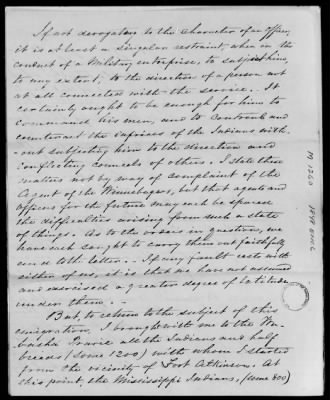 If not derogatory to the character of an officer,
it is at least a singular restraint, when in the
conduct of a Military enterprise, to subject him,
to any extent, to the direction of a person not
at all connected with the service. It
certainly ought to be enough for him to
command his men, and to control and
counteract the caprices of the Indians with-
out subjecting him to the direction and
conflicting councils of others. I state these
matters not by way of complaint of the
Agent of the Winnebagoes, but that agents and
officers for the future may each be spared
the difficulties arising from such a state
of things. As to the orders in question, we
have each sought to carry them out faithfully
and to the letter. If any fault rests with
either of us, it is that we have not assumed
and exercised a greater degree of latitude
under them.
But, to return to the subject of this
emigration. I brought with me to the Wa-
basha Prairie all the Indians and half
breeds (some 1200) with whom I started
from the vicinity of Fort Atkinson. At
this point, the Mississippi Indians, (some 800)
M 1260